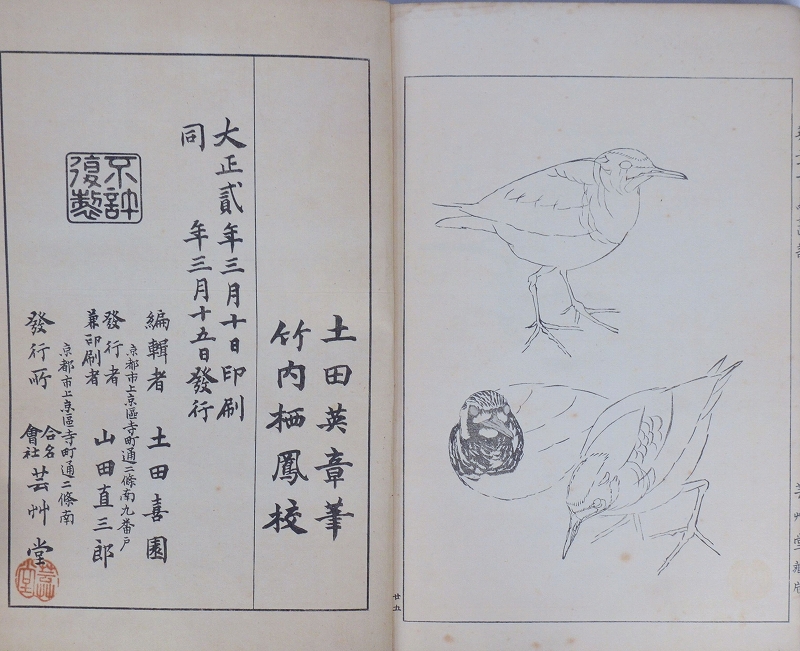 土田英章筆
竹内栖鳳校
大正貳年三月十日印刷
同 年三月十五日發行
不許
復製
編輯者 土田喜園
京都市上京區寺町通二條南九番戸
發行者
兼印刷者 山田直三郎
京都市上京區寺町通二條南
發行所 合名會社 芸艸堂
芸艸堂
廿五
芸艸堂藏版